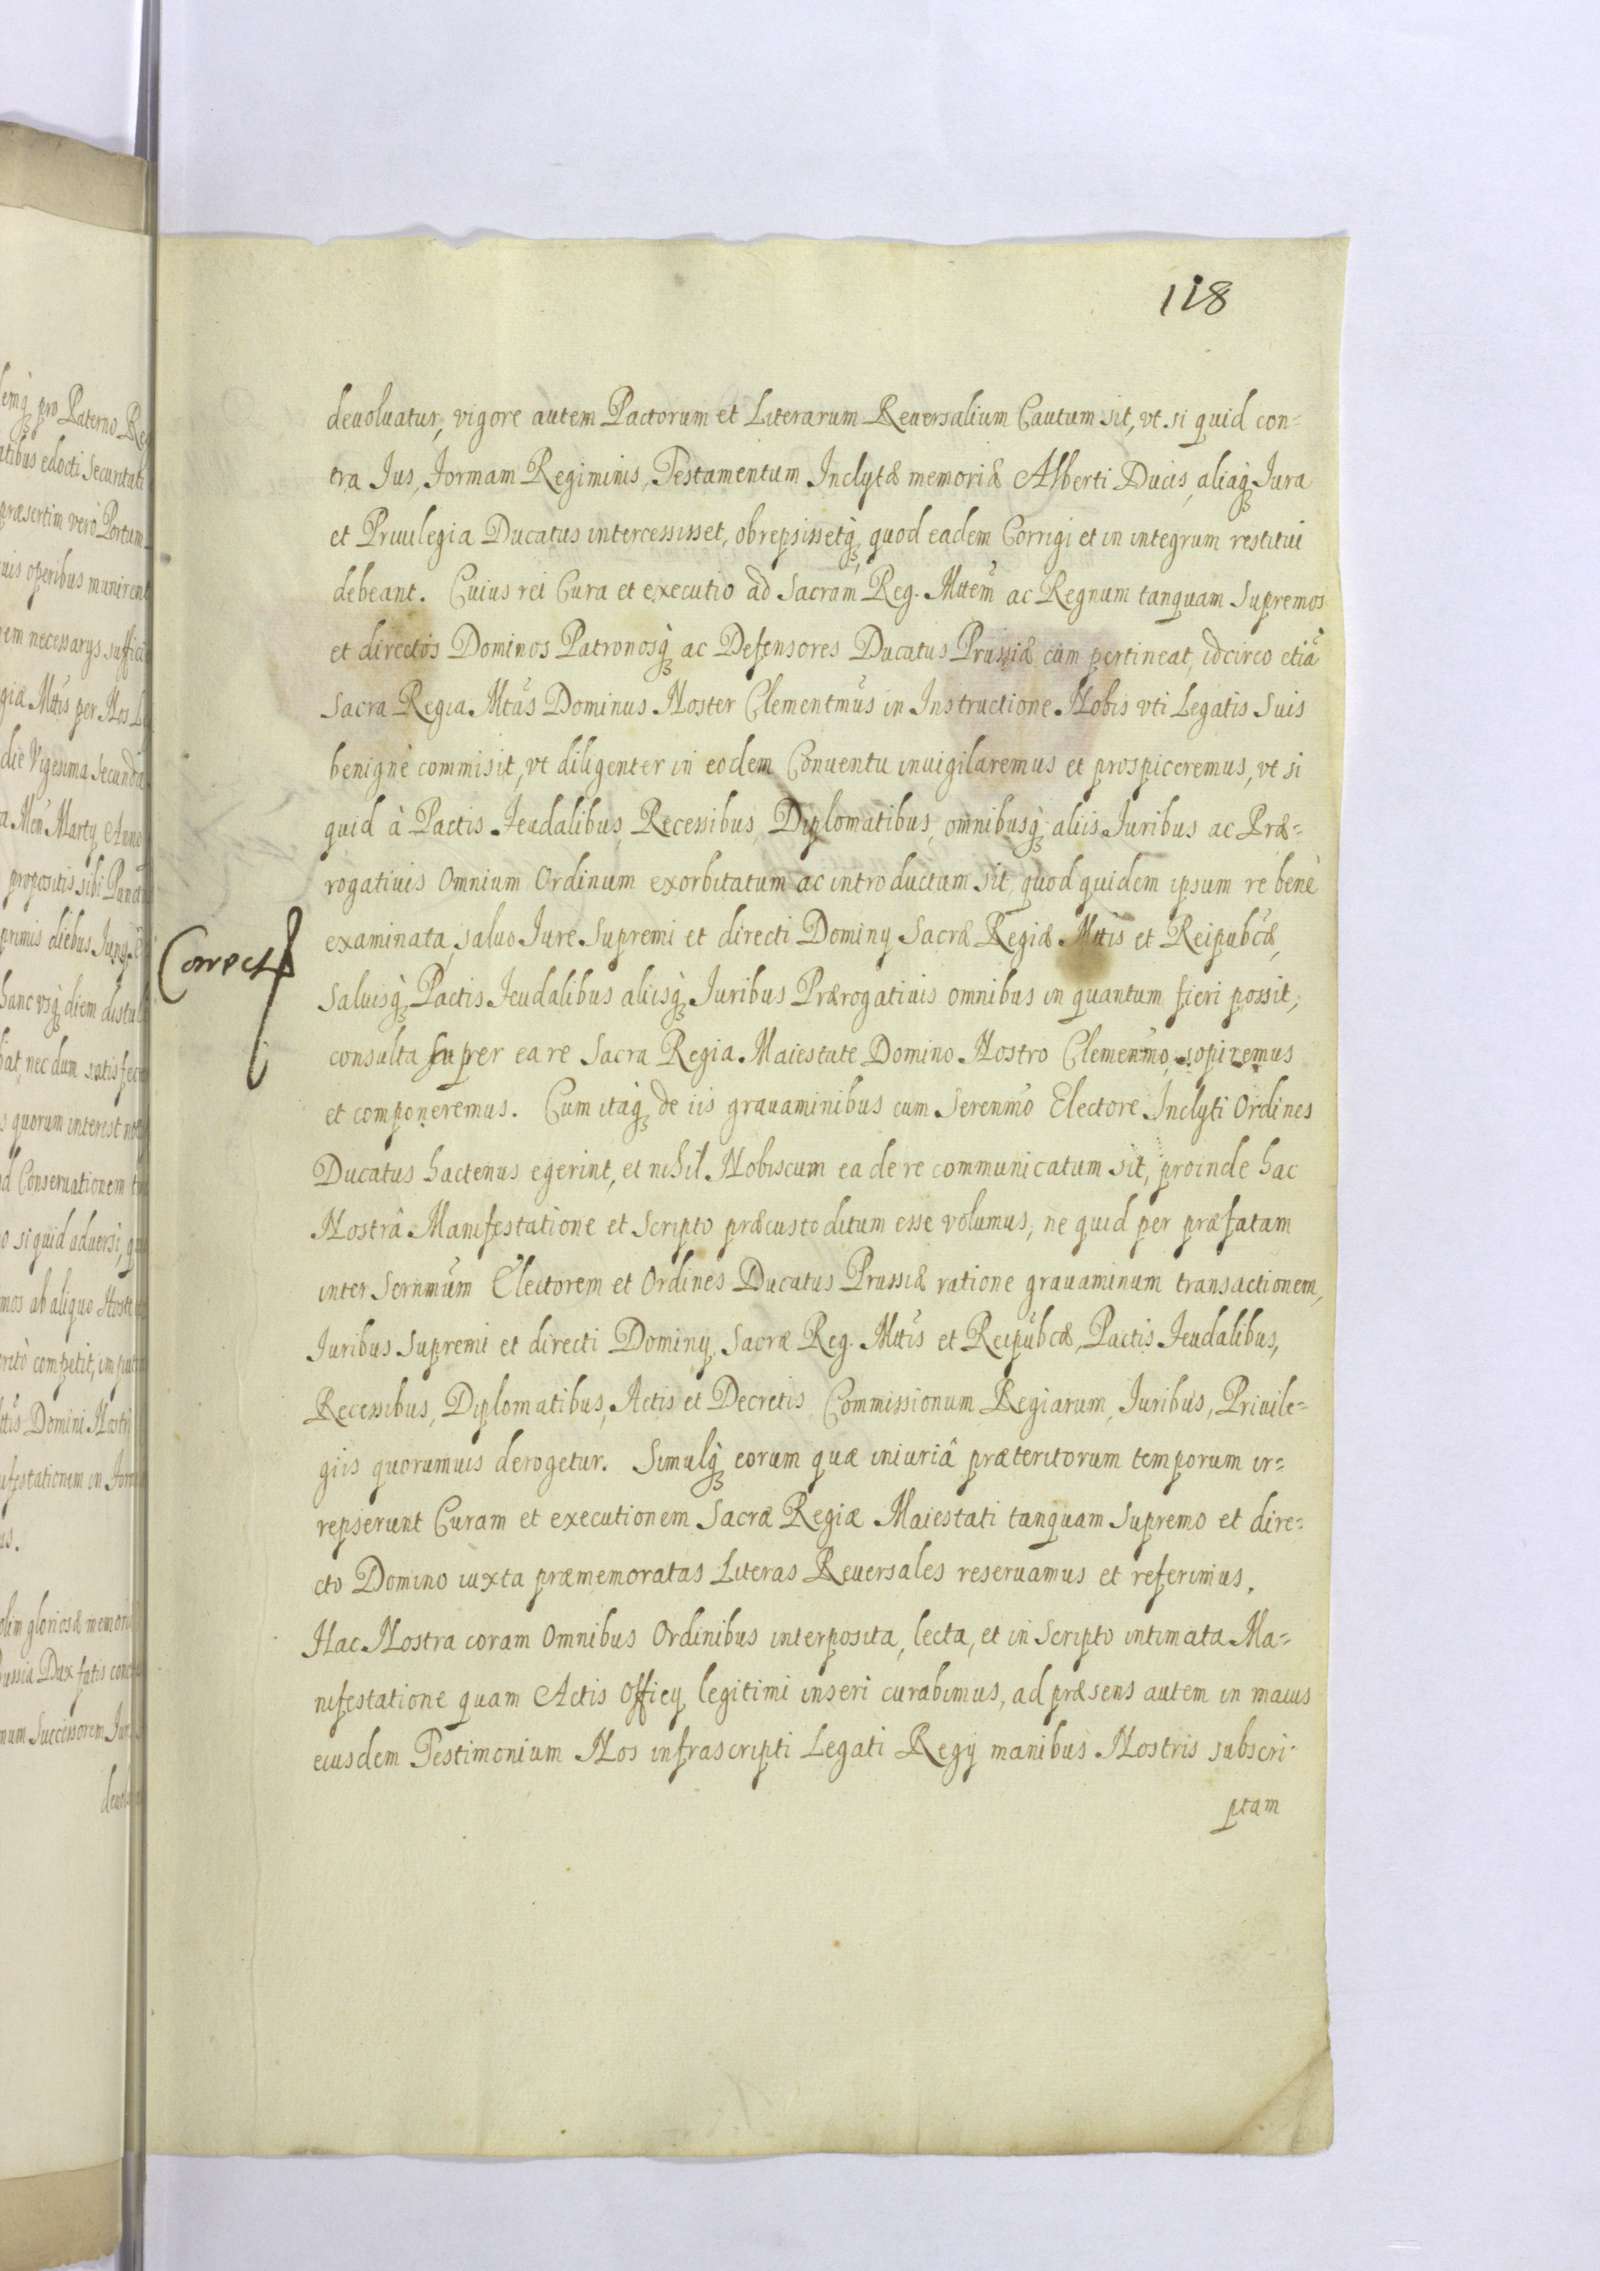 118
deuoluatur, vigore autem Pactorum et Literarum Reuersalium Cautum sit, vt si quid con=
tra Jus, Formam Regiminis, Testamentum Inclytæ memoriæ Alberti Ducis, aliaq; Jura
et Priuilegia Ducatus intercessisset, obrepsissetq; quod eadem Corrigi et in integrum restitui
debeant. Cuius rei Cura et executio ad Sacram Reg. Mttem ac Regnum tanquam Supremos
et directos Dominos Patronosq; ac Defensores Ducatus Prussiæ cum pertineat, idcirco etiã
Sacra Regia Mtas Dominus Noster Clementmus in Instructione Nobis vti Legatis Suis
benignè commisit, vt diligenter in eodem Conuentu inuigilaremus et prospiceremus, vt si
quid à Pactis Feudalibus, Recessibus, Diplomatibus, omnibusq; aliis Juribus ac Præ=
rogatiuis Omnium Ordinum exorbitatum ac introductum sit, quod quidem ipsum re benè
examinata, saluo Jure Supremi et directi Dominÿ Sacræ Regiæ Mttis et Reipubcæ,
Correct
saluisq; Pactis Feudalibus aliisq; Juribus Prærogatiuis omnibus in quantum fieri possit,
consulta super ea re Sacra Regia Maiestate Domino Nostro Clemenmo, sopiremus
et componeremus. Cum itaq; de iis grauaminibus cum Serenmo Electore Inclyti Ordines
Ducatus hactenus egerint, et nihil Nobiscum ea de re communicatum sit, proinde hac
Nostrâ Manifestatione et Scripto præcustoditum esse volumus, ne quid per præfatam
inter Sernmum Electorem et Ordines Ducatus Prussiæ ratione grauaminum transactionem,
Juribus Supremi et directi Dominÿ, Sacræ Reg. Mttis et Reipubcæ, Pactis Feudalibus,
Recessibus, Diplomatibus, Actis et Decretis Commissionum Regiarum, Juribus, Priuile=
giis quorumuis derogetur. Simulq; eorum quæ iniuriâ præteritorum temporum ir=
repserunt Curam et executionem Sacræ Regiæ Maiestati tanquam Supremo et dire=
cto Domino iuxta præmemoratas Literas Reuersales reseruamus et referimus.
Hac Nostra coram Omnibus Ordinibus interposita, lecta, et in Scripto intimata Ma=
nifestatione quam Actis Officÿ legitimi inseri curabimus, ad præsens autem in maius
eiusdem Testimonium Nos infrascripti Legati Regÿ manibus Nostris subscri=
ptam